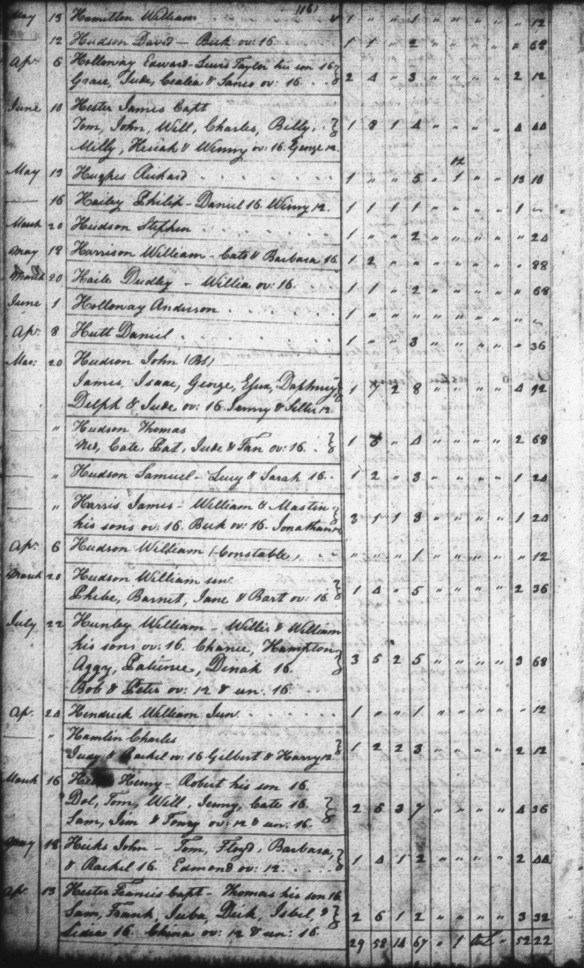 (16)
May 13 Hamilton William 1 " " 1 " " " " " 12
12 Hudson David - Beck ov: 16 1 1 " 2 " " " " " 68
Apr. 6 Holloway Edward - Lewis Taylor his son 16
Grace, Jude, & James ov: 16 2 4 " 3 " " " " 2 12
June 10 Hester James Capt
Tom, John, Will, Charles, Billy, 1 8 1 4 " " " " 4 44
Milly, Kesiah & Winny ov: 16. George 12.
May 13 Hughes Richard 1 " " 5 " 1 12 " " 13 10
16 Hailey Philip - Daniel 16 Winny 12. 1 1 1 1 " " " " 1 -
March 20 Hudson Stephen 1 " " 2 " " " " " 24
May 18 Harrison William - Cate & Barbara 16 1 2 " " " " " " " 88
March 20 Haile Dudley - Willia ov: 16. 1 1 " 2 " " " " " 68
June 1 Holloway Anderson 1 " " " " " " " " "
Apr. 8 Hutt Daniel 1 " " 3 " " " " " 36
Mar: 20 Hudson John (Bs)
James, Isaac, George, Daphney, 1 7 2 8 " " " " 4 92
Delph & Jude ov: 16. Jenny & 12
" Hudson Thomas
Ned, Cate, Pat, Jude & Fan ov: 16. 1 " 4 " " " " 2 68
" Hudson Samuel - Lucy & Sarah 16. 1 2 " 3 " " " " 1 24
" Harris James - William & Mastin
his sons ov: 16. Beck ov: 16. Jonathan 3 1 1 3 " " " " 1 24
Apr. 6 Hudson William (Constable) " " " 1 " " " " " 12
March 20 Hudson William sen.
Phebe, Barnet, Jane & Bart ov: 16. 1 4 " 5 " " " " 2 36
July 22 Hunley William - Willis & William
his sons ov: 16. Chance, Hampton,
Aggy, Patience, Dinah 16. 3 5 2 5 " " " " 3 68
Bob & Peter ov: 12 & un: 16.
Apr. 24 Hendrick William Jun. 1 " " 1 " " " " " 12
" Hamlin Charles
Judy & Rachel ov: 16 Gilbert & Harry 12 1 2 2 3 " " " " 2 12
March 16 Henry - Robert his son 16.
Dol, Tom, Will, Jenny, Cate 16. 2 5 3 7 " " " " 4 36
Sam, Jim & ov: 12 & un: 16.
May 18 Hicks John - Tom, Floyd, Barbara,
& Rachel 16. Edmond ov: 12. 1 4 1 2 " " " " 2 44
Apr. 13 Hester Francis Capt - Thomas his son 16
Sam, Frank, Juba, Dick, Isbel, & 2 6 1 2 " " " " 3 32
Lidia 16. China ov: 12 & un: 16. 29 52 14 67 " 1 " 52 22